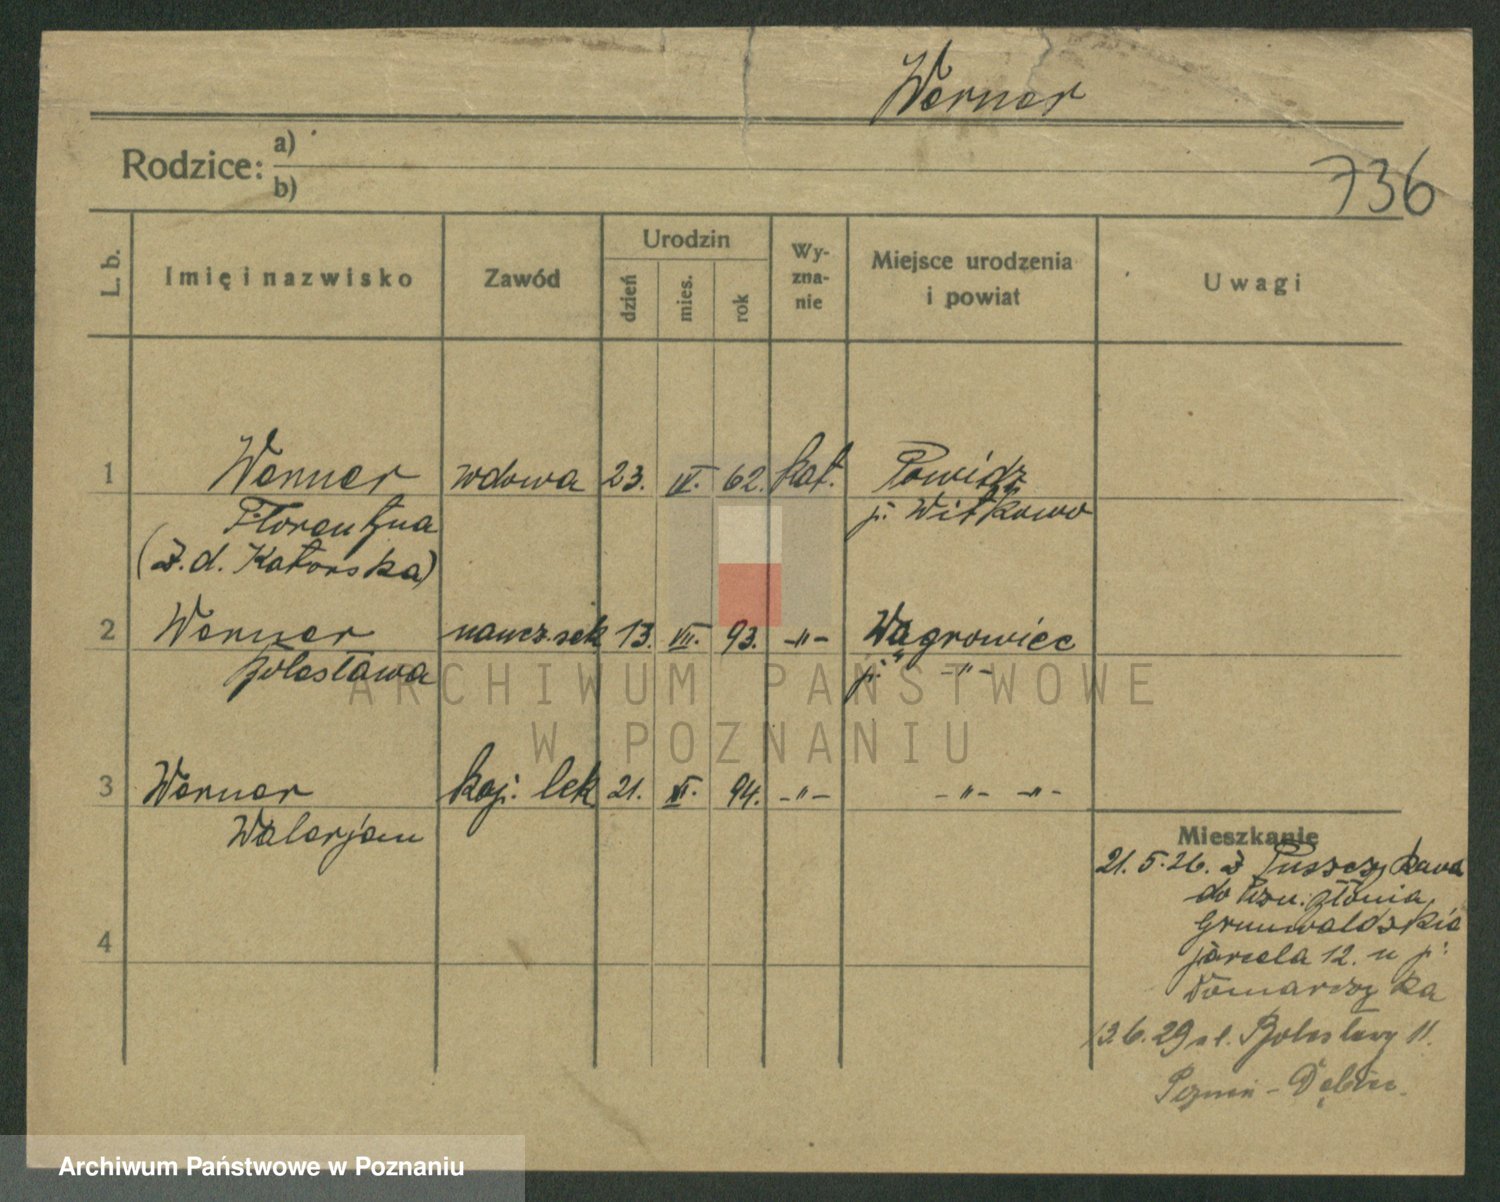 Werner
Rodzice: a)
b)
736
L. b.
Imię i nazwisko
Zawód
Urodzin
dzień
mies.
rok
Wy-
zna-
nie
Miejsce urodzenia
i powiat
Uwagi
1 Werner wdowa 23. IV. 62. kat. Powidz
Florentyna p. Witkowo
(z. d. Katorska)
2 Werner naucz. sek 13. VII. 93. -"- Wągrowiec
Bolesława p. -"-
3 Werner kap. lek 21. XI. 94. -"- -"- -"-
Walerjan
4
Mieszkanie
21. 5. 26. z Puszczykowa
do Pozn. Błonia
Grunwaldzkie
parcela 12. u p.
Domarczyka
13. 6. 29 ul. Bolesławy 11.
Poznań - Dębiec.
ARCHIWUM PAŃSTWOWE
W POZNANIU
Archiwum Państwowe w Poznaniu